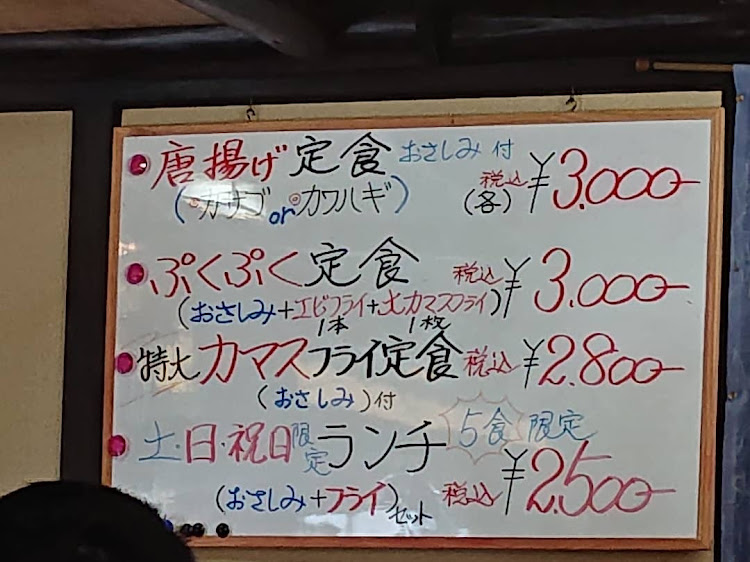 唐揚げ定食 おさしみ付 税込(各) ¥3.000-
(カサゴorカワハギ)
ぷくぷく定食 税込 ¥3.000-
(おさしみ+エビフライ+大カマスフライ)
1本 1枚
特大カマスフライ定食 税込 ¥2.800-
(おさしみ)付
土・日・祝日限定ランチ 5食限定
(おさしみ+フライ)セット 税込 ¥2.500-